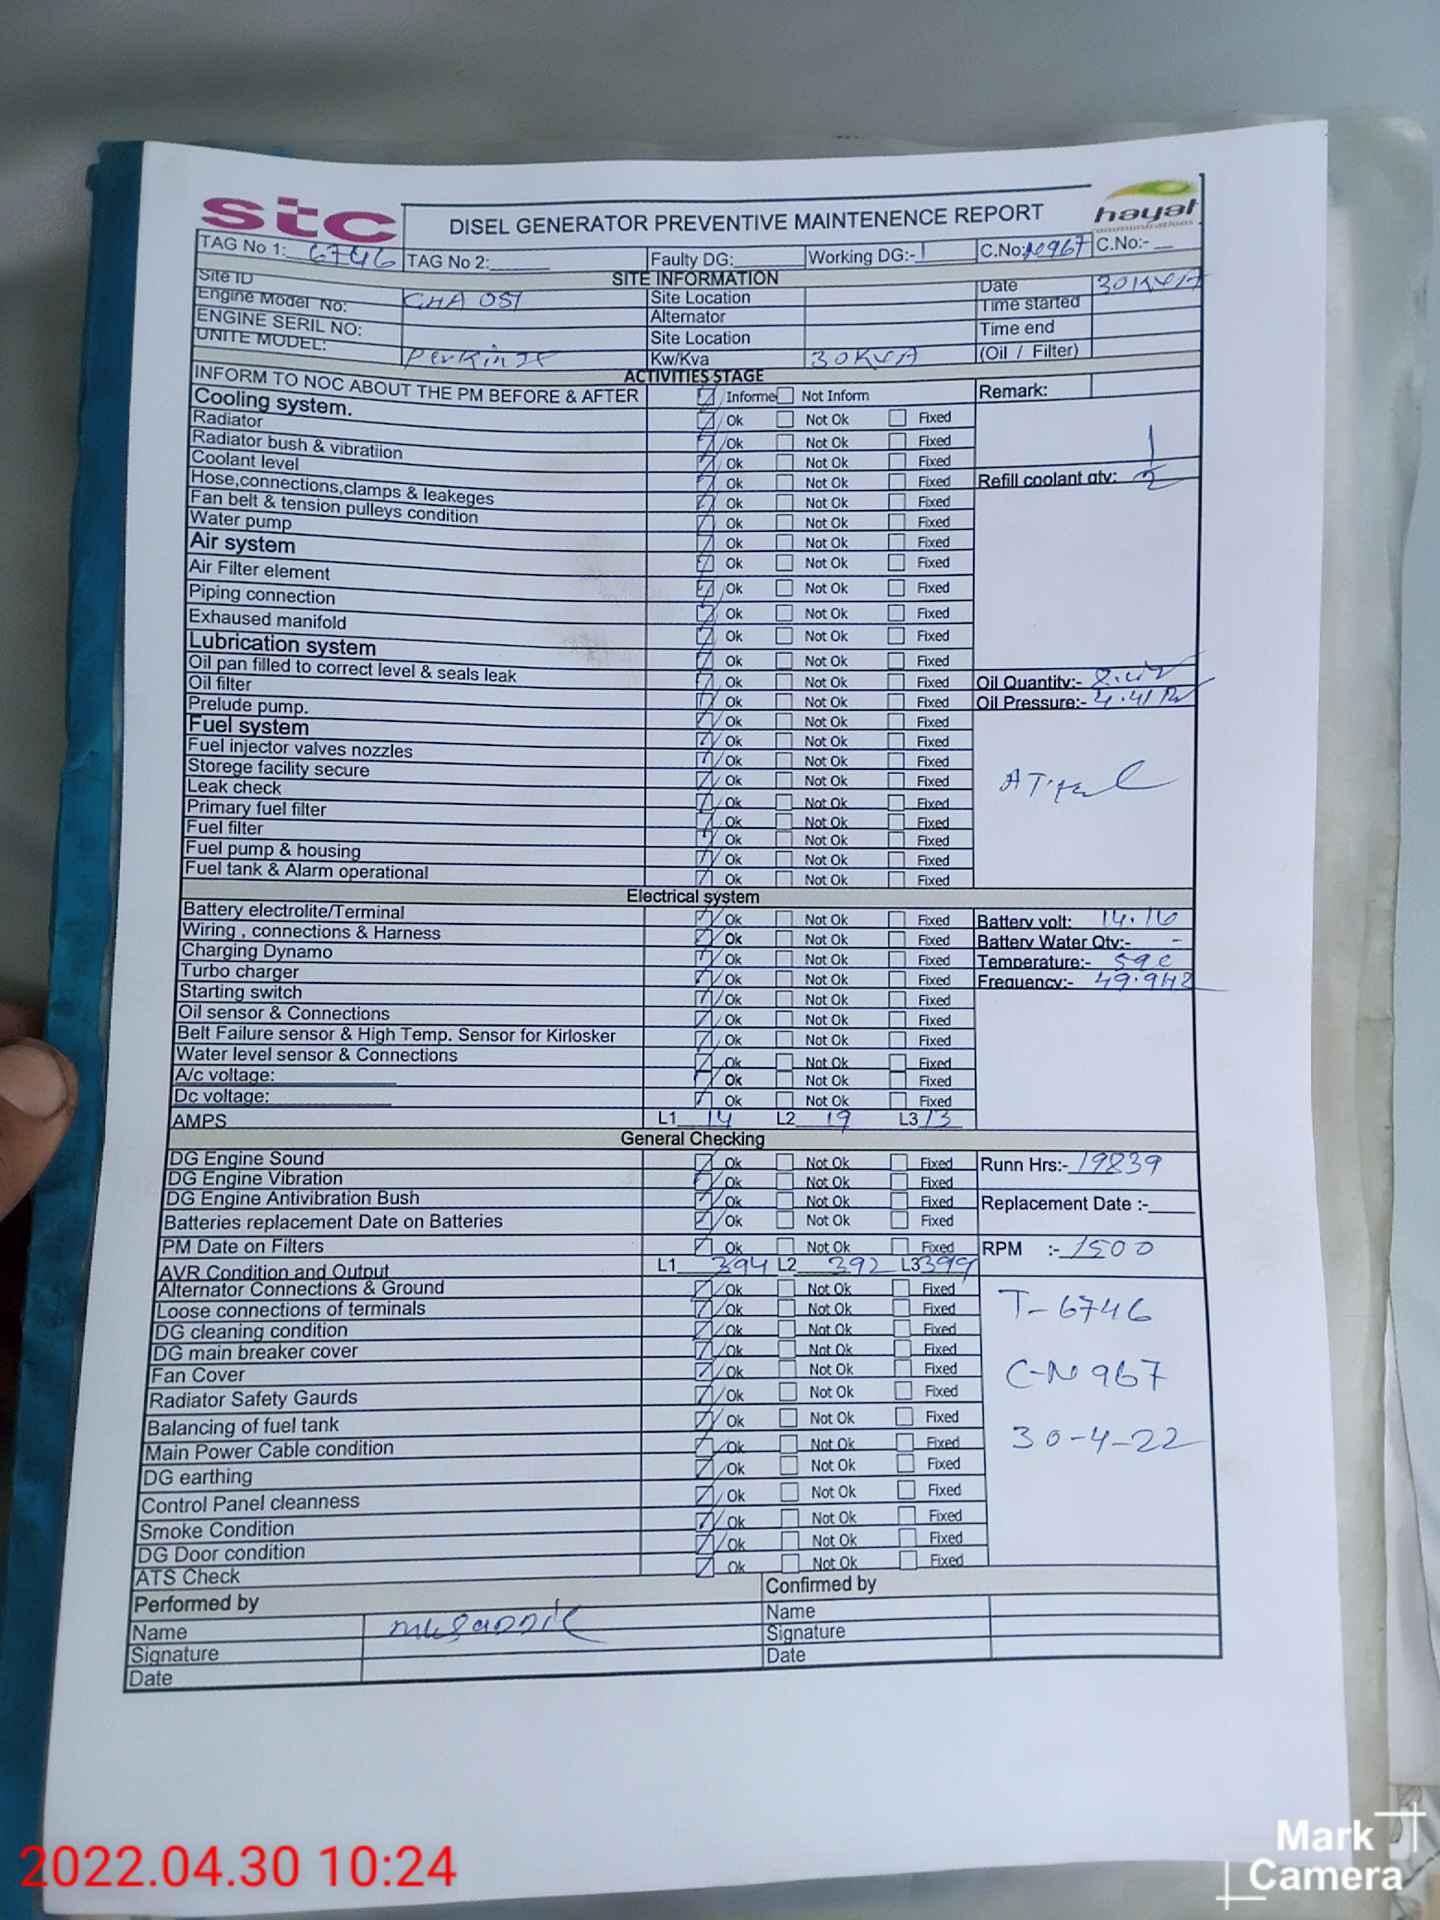 stc
DISEL GENERATOR PREVENTIVE MAINTENENCE REPORT
hayat
communications
TAG No 1: 6746 TAG No 2: Faulty DG: Working DG:- 1 C.No: N967 C.No:-
SITE INFORMATION
Site ID CHA 051 Site Location Date 30KVA
Engine Model No: Alternator Time started
ENGINE SERIL NO: Site Location Time end
UNITE MODEL: Kw/Kva 30KVA (Oil / Filter)
ACTIVITIES STAGE
INFORM TO NOC ABOUT THE PM BEFORE & AFTER Informe Not Inform Remark:
Cooling system. Ok Not Ok Fixed
Radiator Ok Not Ok Fixed
Radiator bush & vibratiion Ok Not Ok Fixed
Coolant level Ok Not Ok Fixed Refill coolant qty:
Hose,connections,clamps & leakeges Ok Not Ok Fixed
Fan belt & tension pulleys condition Ok Not Ok Fixed
Water pump Ok Not Ok Fixed
Air system Ok Not Ok Fixed
Air Filter element Ok Not Ok Fixed
Piping connection Ok Not Ok Fixed
Exhaused manifold Ok Not Ok Fixed
Lubrication system Ok Not Ok Fixed
Oil pan filled to correct level & seals leak Ok Not Ok Fixed Oil Quantity:-
Oil filter Ok Not Ok Fixed Oil Pressure:-
Prelude pump. Ok Not Ok Fixed
Fuel system Ok Not Ok Fixed
Fuel injector valves nozzles Ok Not Ok Fixed
Storege facility secure Ok Not Ok Fixed
Leak check Ok Not Ok Fixed
Primary fuel filter Ok Not Ok Fixed
Fuel filter Ok Not Ok Fixed
Fuel pump & housing Ok Not Ok Fixed
Fuel tank & Alarm operational Ok Not Ok Fixed
Electrical system
Battery electrolite/Terminal Ok Not Ok Fixed Battery volt: 14.16
Wiring , connections & Harness Ok Not Ok Fixed Battery Water Qty:- -
Charging Dynamo Ok Not Ok Fixed Temperature:- 59c
Turbo charger Ok Not Ok Fixed Frequency:- 49.9HZ
Starting switch Ok Not Ok Fixed
Oil sensor & Connections Ok Not Ok Fixed
Belt Failure sensor & High Temp. Sensor for Kirlosker Ok Not Ok Fixed
Water level sensor & Connections Ok Not Ok Fixed
A/c voltage: Ok Not Ok Fixed
Dc voltage: Ok Not Ok Fixed
AMPS L1 14 L2 19 L3 13
General Checking
DG Engine Sound Ok Not Ok Fixed Runn Hrs:- 19839
DG Engine Vibration Ok Not Ok Fixed
DG Engine Antivibration Bush Ok Not Ok Fixed Replacement Date :-
Batteries replacement Date on Batteries Ok Not Ok Fixed
PM Date on Filters Ok Not Ok Fixed RPM :- 1500
AVR Condition and Output L1 394 L2 392 L3 399
Alternator Connections & Ground Ok Not Ok Fixed T-6746
Loose connections of terminals Ok Not Ok Fixed
DG cleaning condition Ok Not Ok Fixed
DG main breaker cover Ok Not Ok Fixed
Fan Cover Ok Not Ok Fixed C-N967
Radiator Safety Gaurds Ok Not Ok Fixed
Balancing of fuel tank Ok Not Ok Fixed
Main Power Cable condition Ok Not Ok Fixed 30-4-22
DG earthing Ok Not Ok Fixed
Control Panel cleanness Ok Not Ok Fixed
Smoke Condition Ok Not Ok Fixed
DG Door condition Ok Not Ok Fixed
ATS Check Ok Not Ok Fixed
Performed by Confirmed by
Name Name
Signature Signature
Date Date
2022.04.30 10:24
Mark
Camera